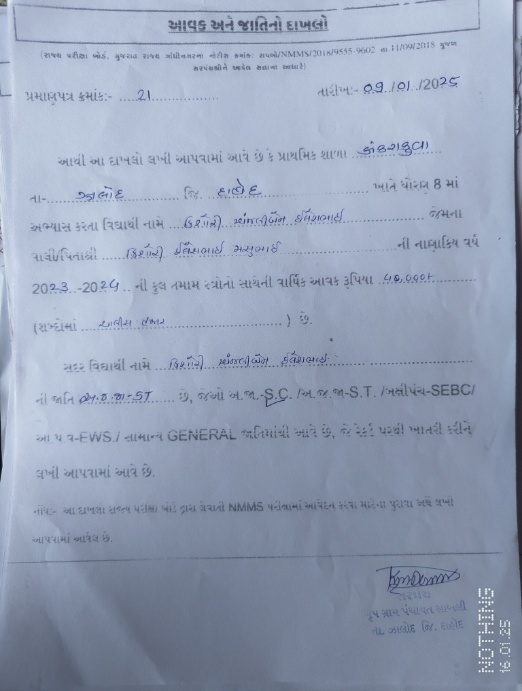 આવક અને જાતિનો દાખલો
(રાજ્ય પરીક્ષા બોર્ડ, ગુજરાત રાજ્ય ગાંધીનગરના નોટીસ ક્રમાંક: રાપબો/NMMS/2018/9555-9602 તા.11/09/2018 મુજબ
સરપંચશ્રીને આપેલ સત્તાના આધારે)
પ્રમાણપત્ર ક્રમાંક:- 21
તારીખ:- 09/01/2025
આથી આ દાખલો લખી આપવામાં આવે છે કે પ્રાથમિક શાળા
તા- ઝાલોદ જિ. દાહોદ ખાતે ધોરણ 8 માં
અભ્યાસ કરતા વિદ્યાર્થી નામે કિશોરી જેમના
વાલી/પિતાશ્રી કિશોરી ની નાણાકિય વર્ષ
2023-2024 ની કુલ તમામ સ્ત્રોતો સાથેની વાર્ષિક આવક રૂપિયા 40,000/-
(શબ્દોમાં ચાલીસ હજાર) છે.
સદર વિદ્યાર્થી નામે કિશોરી
ની જાતિ અ.જ.જા-ST છે, જેઓ અ.જા.-S.C. /અ.જ.જા-S.T. /બક્ષીપંચ-SEBC/
આ.પ.વ-EWS./ સામાન્ય GENERAL જાતિમાંથી આવે છે, જે રેકર્ડ પરથી ખાતરી કરીને
લખી આપવામાં આવે છે.
નોંધ:- આ દાખલો રાજ્ય પરીક્ષા બોર્ડ દ્વારા લેવાતી NMMS પરીક્ષામાં આવેદન કરવા માટેના પુરાવા અર્થે લખી
આપવામાં આવેલ છે.
સરપંચ
ગૃપ ગ્રામ પંચાયત
તા. ઝાલોદ જિ. દાહોદ
NOTHING
16.01.25